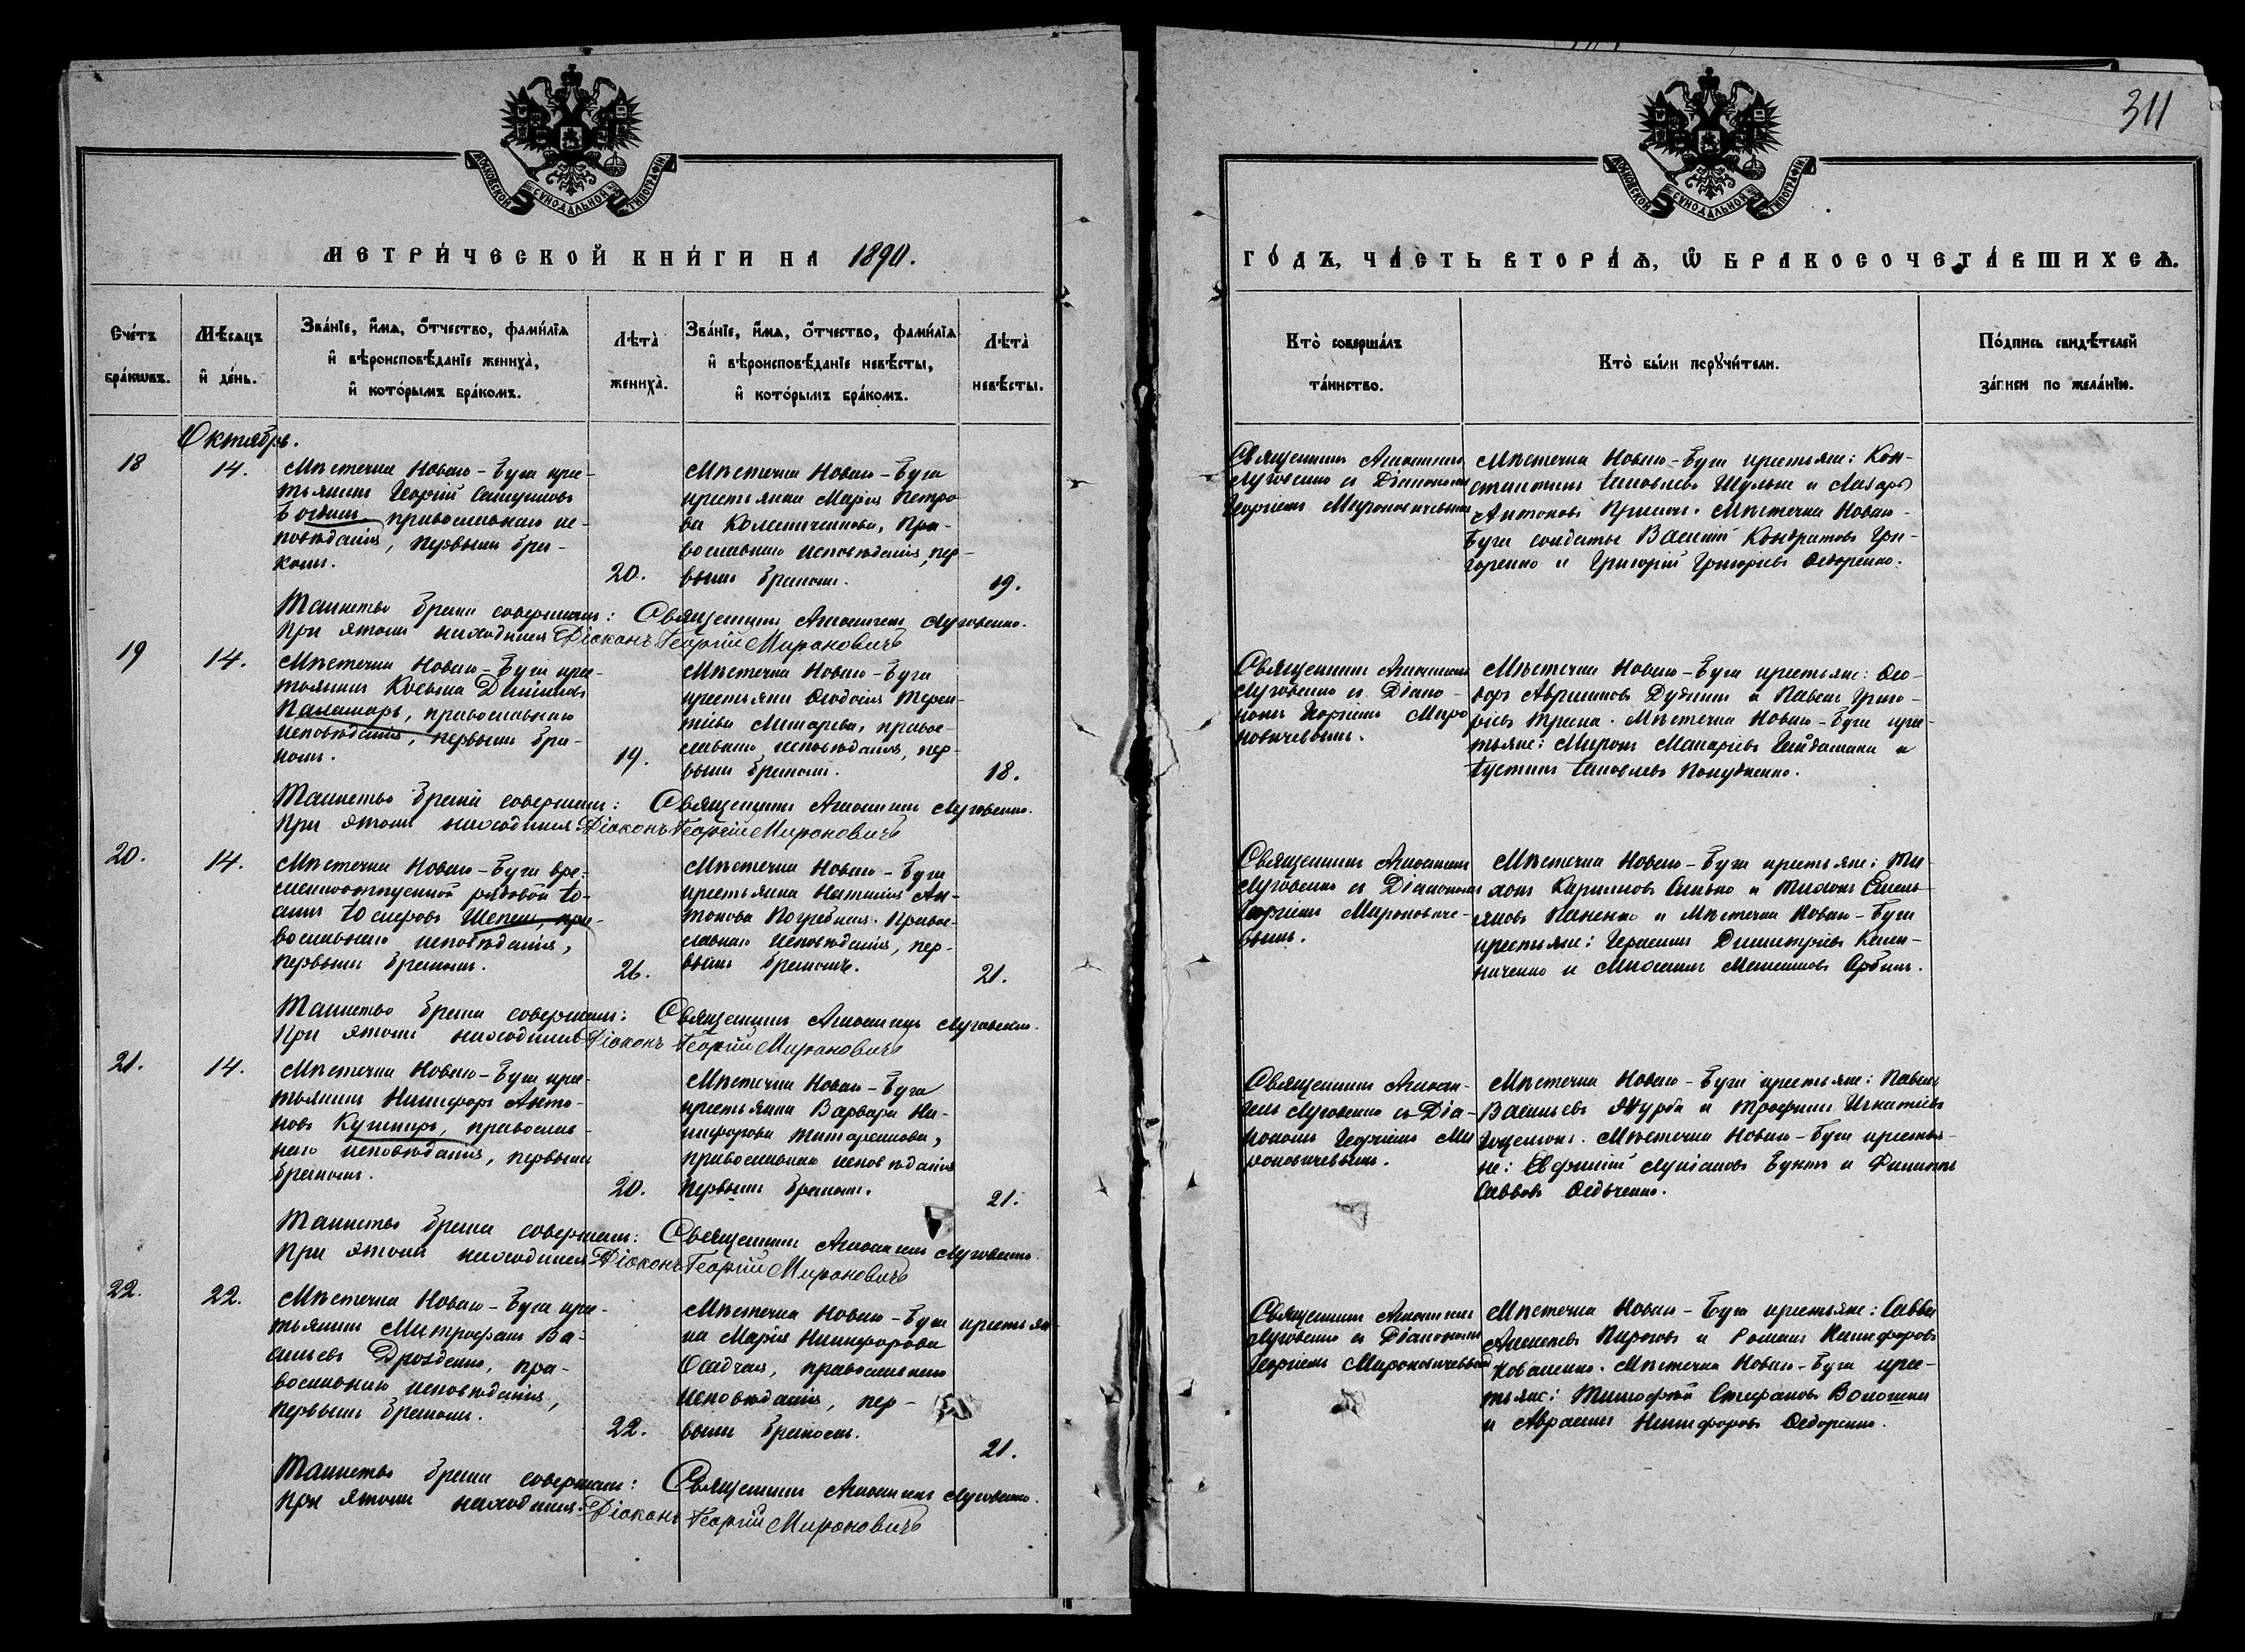 311
МОСКОВСКОЙ СУНОДАЛЬНОЙ ТИПОГРАФІИ
МОСКОВСКОЙ СУНОДАЛЬНОЙ ТИПОГРАФІИ
МЕТРИ́ЧЕСКОЙ КНИ́ГИ НА 1890.
ГО́ДЪ, ЧА́СТЬ ВТОРА́Ѧ, Ѽ БРАКОСОЧЕТА́ВШИХСѦ.
Сче́тъ
бра́кѡвъ.
Мѣ́сяцъ
и҆ де́нь.
Зва́нїе, и҆́мѧ, ѻ҆́тчество, фами́лїѧ
и҆ вѣроисповѣ́данїе жениха̀,
и҆ кото́рымъ бра́комъ.
Лѣта̀
жениха̀.
Зва́нїе, и҆́мѧ, ѻ҆́тчество, фами́лїѧ
и҆ вѣроисповѣ́данїе невѣ́сты,
и҆ кото́рымъ бра́комъ.
Лѣта̀
невѣ́сты.
Кто̀ соверша́лъ
та́инство.
Кто̀ бы́ли порꙋчи́тели.
По́дпись свидѣ́телей
за́писи по жела́нїю.
Октябрь.
18
14.
Мѣстечка Новаго-Буга кре-
стьянинъ Георгій
православнаго ис-
повѣданія, первымъ бра-
комъ.
20.
Мѣстечка Новаго-Буга
крестьянка Марія Петро
ва Колесниченкова, Пра-
вославнаго исповѣданія, пер-
вымъ бракомъ.
19.
Священникъ
Луговенко съ Діакономъ
Георгіемъ Мироновичевымъ
Мѣстечка Новаго-Буга крестьяне: Кон-
стантинъ Іаковлевъ Шульга и Лазарь
Антоновъ Мѣстечка Новаго-
Буга солдаты Василій Кондратовъ Гри-
горенко и Григорій Григорьевъ Ѳедоренко.
Таинство брака совершалъ: Священникъ Луговенко.
При этомъ находился Діаконъ Георгій Мироновичъ
19
14.
Мѣстечка Новаго-Буга кре-
стьянинъ Косьма
Паламарь, православнаго
исповѣданія, первымъ бра-
комъ.
19.
Мѣстечка Новаго-Буга
крестьянка Ѳеодосія Терен-
тіева православ-
славнаго исповѣданія, пер-
вымъ бракомъ.
18.
Священникъ
Луговенко съ Діако-
номъ Георгіемъ Миро
новичевымъ.
Мѣстечка Новаго-Буга крестьяне: Ѳео-
доръ Аврамовъ и Павелъ Григо-
рьевъ Мѣстечка Новаго-Буга кре-
стьяне: Миронъ Макаріевъ Гайдамака и
Іустинъ Іаковлевъ
Таинство брака совершалъ: Священникъ Луговенко.
При этомъ находился: Діаконъ Георгій Мироновичъ
20.
14.
Мѣстечка Новаго-Буга вре-
менноотпускной рядовой Іо-
аннъ Іосифовъ пра-
вославнаго исповѣданія,
первымъ бракомъ.
26.
Мѣстечка Новаго-Буга
крестьянка Наталія Ан-
тонова Погребная. Право-
славнаго исповѣданія, пер-
вымъ бракомъ.
21.
Священникъ
Луговенко съ Діакономъ
Георгіемъ Мироновиче-
вымъ.
Мѣстечка Новаго-Буга крестьяне: Ти-
хонъ Кирилловъ и Тихонъ Емель-
яновъ Паненко и Мѣстечка Новаго-Буга
крестьяне: Герасимъ Димитріевъ
и Михаилъ
Таинство брака совершалъ: Священникъ Луговенко.
При этомъ находился Діаконъ Георгій Мироновичъ
21.
14.
Мѣстечка Новаго-Буга кре-
стьянинъ Никифоръ Анто-
новъ Кушниръ, православ-
наго исповѣданія, первымъ
бракомъ.
20.
Мѣстечка Новаго-Буга
крестьянка Варвара Ни-
кифорова Титаренкова,
православнаго исповѣданія
первымъ бракомъ.
21.
Священникъ
Луговенко съ Діа-
кономъ Георгіемъ Ми
роновичевымъ.
Мѣстечка Новаго-Буга крестьяне: Павелъ
Васильевъ Журба и Трофимъ Игнатіевъ
Мѣстечка Новаго-Буга крестья-
не: Евфимій Лукіановъ и Филиппъ
Саввовъ
Таинство брака совершалъ: Священникъ Луговенко.
При этомъ находился Діаконъ Георгій Мироновичъ
22.
22.
Мѣстечка Новаго-Буга кре-
стьянинъ Митрофанъ Ва-
сильевъ Дрозденко, пра-
вославнаго исповѣданія,
первымъ бракомъ.
22.
Мѣстечка Новаго-Буга крестьян-
ка Марія Никифорова
православнаго
исповѣданія, пер-
вымъ бракомъ.
21.
Священникъ
Луговенко съ Діакономъ
Георгіемъ Мироновичевымъ
Мѣстечка Новаго-Буга крестьяне: Савва
Алексѣевъ Пироговъ и Романъ Никифоровъ
Коваленко. Мѣстечка Новаго-Буга кре-
стьяне: Тимофей Стефановъ Волошинъ
и Аврамій Никифоровъ Ѳедоренко.
Таинство брака совершалъ: Священникъ Луговенко.
При этомъ находился: Діаконъ Георгій Мироновичъ